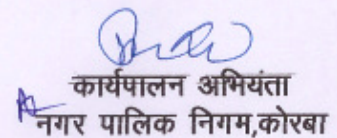 कार्यपालन अभियंता
नगर पालिक निगम,कोरबा